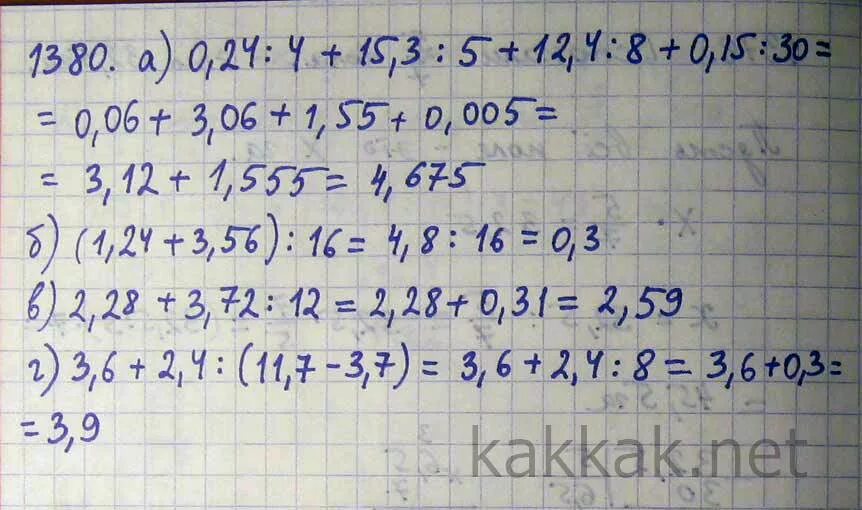 1380. а) 0,24 : 4 + 15,3 : 5 + 12,4 : 8 + 0,15 : 30 =
= 0,06 + 3,06 + 1,55 + 0,005 =
= 3,12 + 1,555 = 4,675
б) (1,24 + 3,56) : 16 = 4,8 : 16 = 0,3
в) 2,28 + 3,72 : 12 = 2,28 + 0,31 = 2,59
г) 3,6 + 2,4 : (11,7 - 3,7) = 3,6 + 2,4 : 8 = 3,6 + 0,3 =
= 3,9
kakkak.net